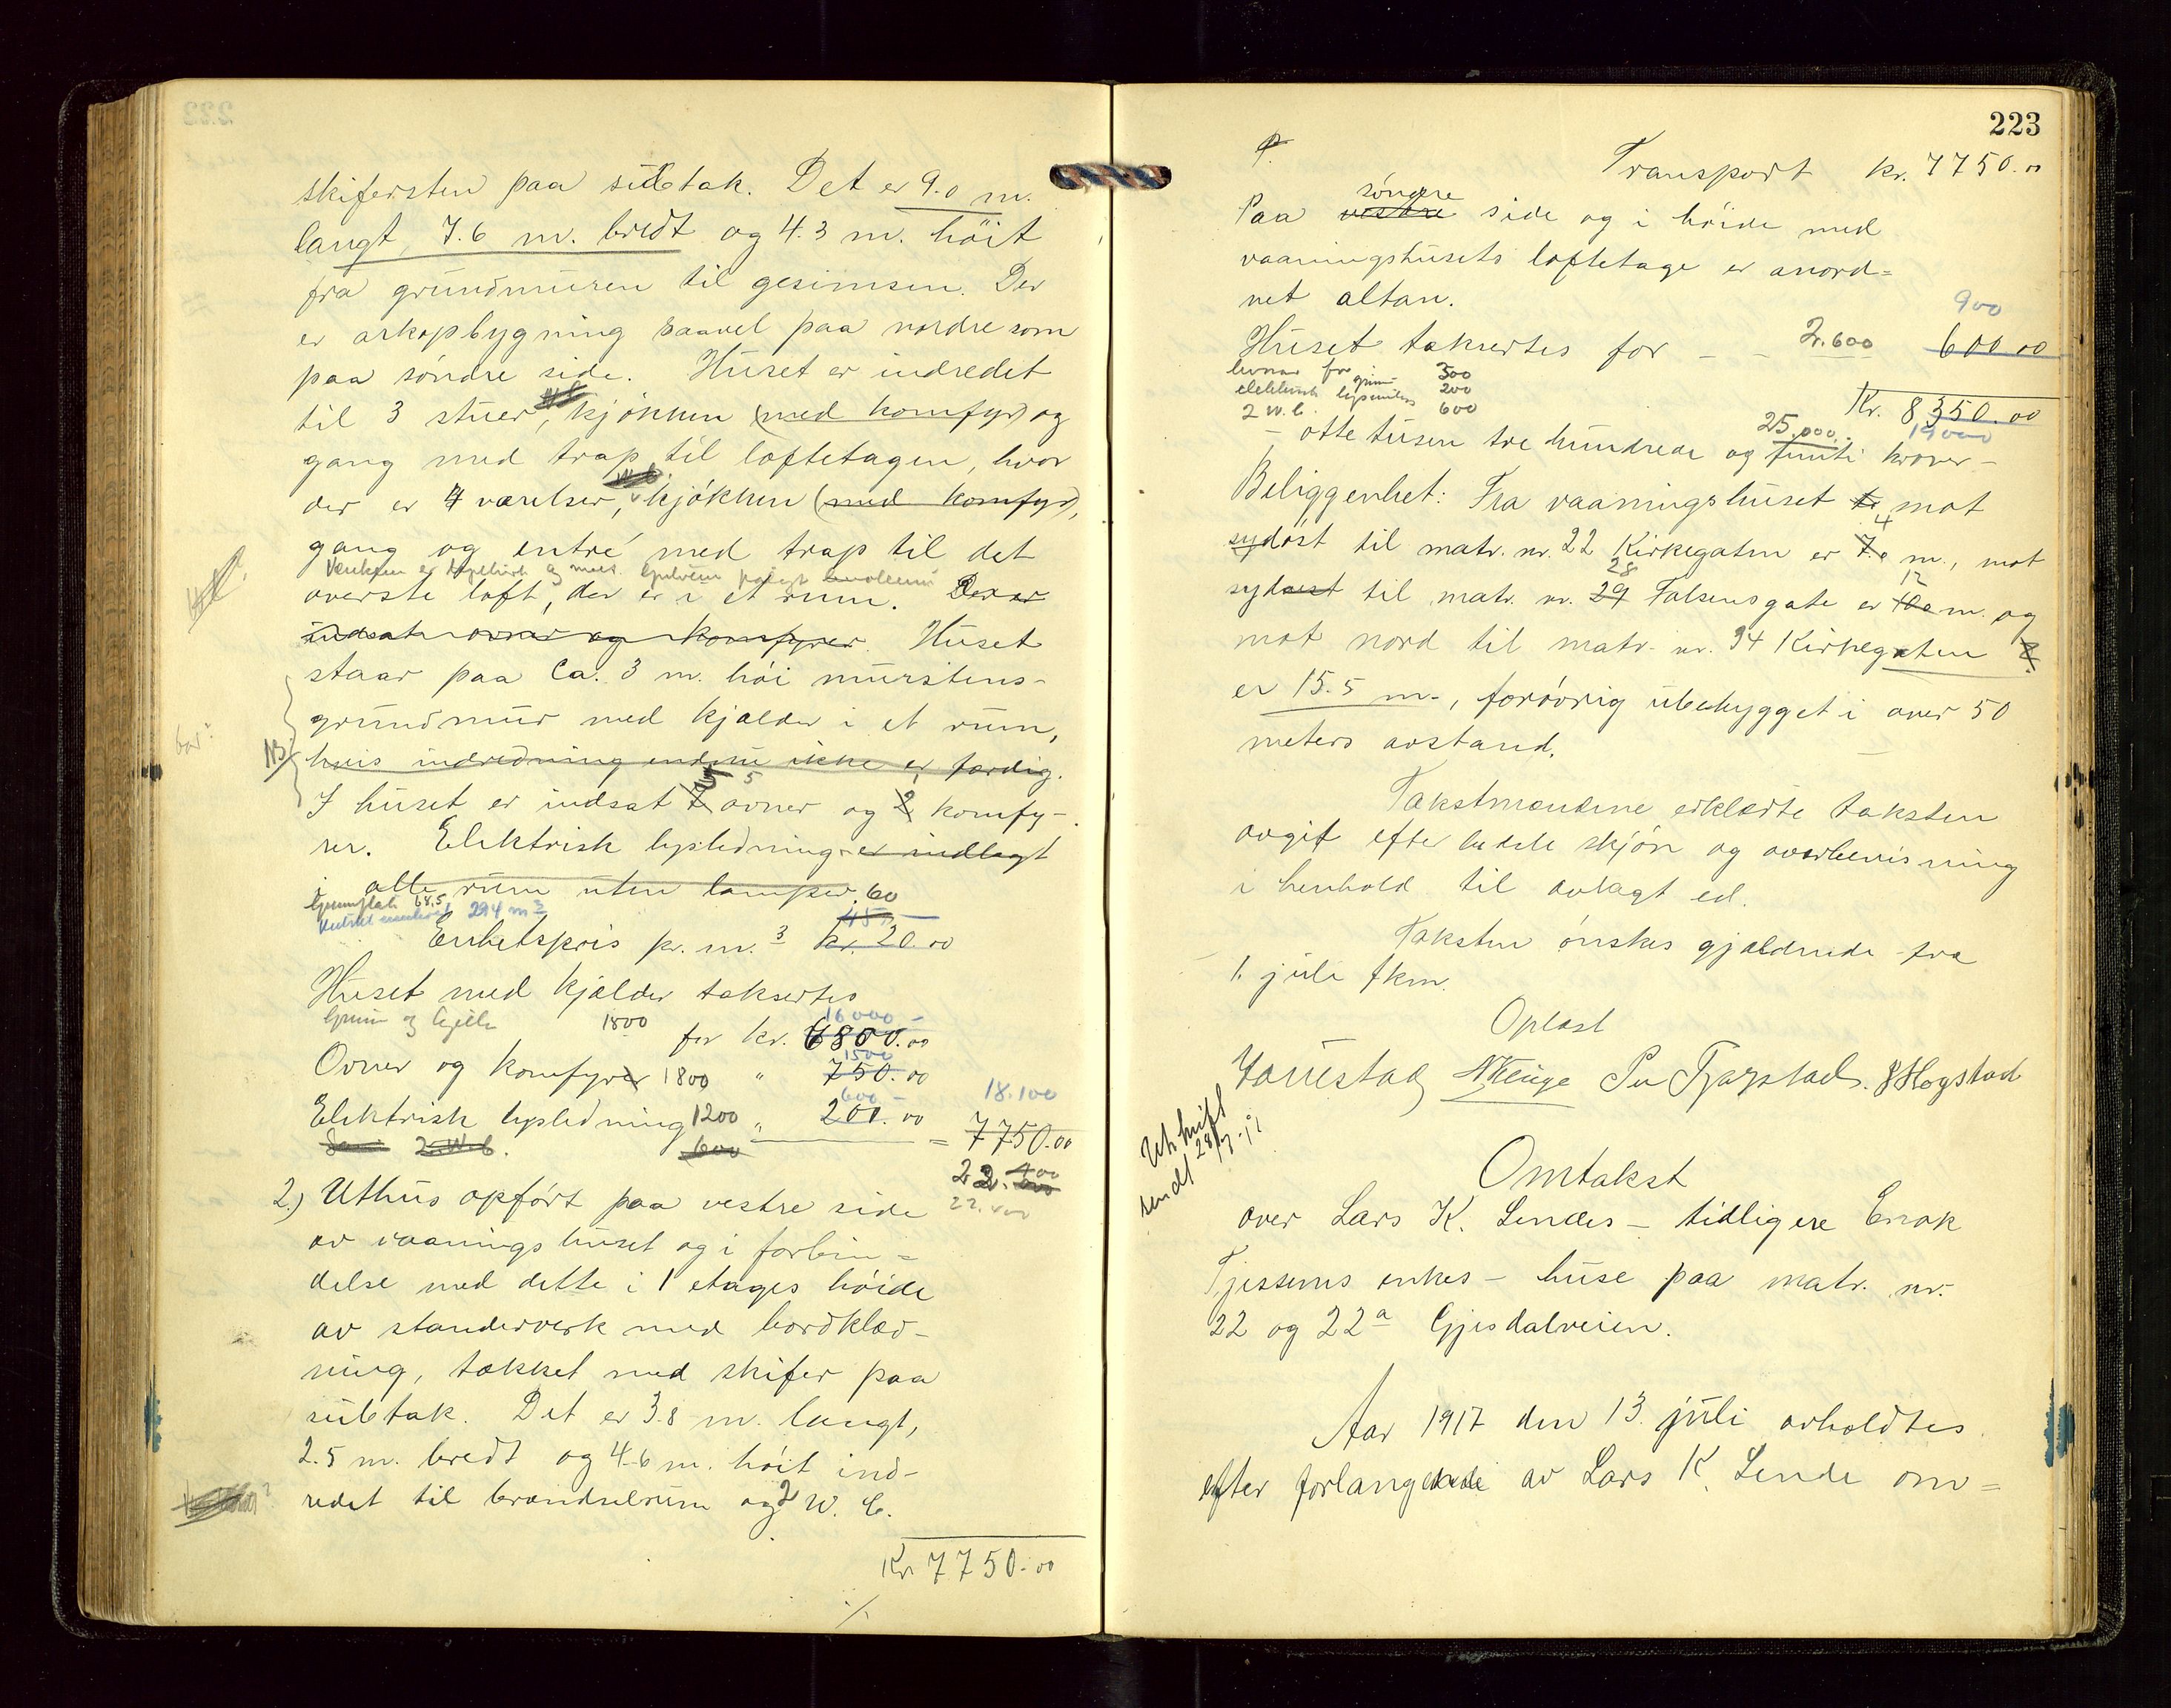 skifersten paa sutak. Det er 9.0 m.
langt, 7.6 m. bredt og 4.3 m. höit
fra grundmuren til gesimsen. Der
er arkopbygning saavel paa nordre som
paa söndre side. Huset er indredet
til 3 stuer, kjökken (med komfyr) og
gang med trap til loftetagen, hvor
der er 4 værelser, kjökken (med komfyr),
gang og entré med trap til det
överste loft, der er i et rum. Der er
indsat ovner og komfyrer. Huset
staar paa Ca. 3 m. höi murstens-
grundmur med kjælder i et rum,
hvis indredning endnu ikke er færdig.
I huset er indsat 7 5 5 ovner og 2 komfy-
rer. Elektrisk lysledning er indlagt
i alle rum uten lamper. 60
294 m3 45
Enhetspris pr. m.3 kr. 20.00
Huset med kjælder taksertes
1800 16000 –
for kr. 6800.00
1500
Ovner og komfyrer 1800 " 750.00
600 – 18.100
Elektrisk lysledning 1200 " 200.00 = 7750.00
2 W.C. 600
2.) Uthus opfört paa vestre side
av vaaningshuset og i forbin=
delse med dette i 1 etages höide
av standerverk med bordklæd-
ning, tækket med skifer paa
sutak. Det er 3.8 m. langt,
2.5 m. bredt og 4.6 m. höit ind-
redet til brændselrum og 2 W.C.
Kr. 7750.00
223
Transport kr. 7750.00
söndre
Paa vestre side og i höide med
vaaningshusets loftetage er anord=
net altan.
900
Huset taksertes for – – 2.600 600.00
300
200
2 W.C. 600
Kr. 8350.00
25.000 19000
– otte tusen tre hundrede og femti kroner –
Beliggenhet: Fra vaaningshuset mot
4
sydöst til matr. nr. 22 Kirkegaten er 7.0 m., mot
28 12
sydvest til matr. nr. 29 Falsensgate er 10.0 m. og
mot nord til matr. nr. 34 Kirkegaten
er 15.5 m., forövrig ubebygget i over 50
meters avstand.
Takstmændene erklærte taksten
avgit efter bedste skjön og overbevisning
i henhold til avlagt ed.
Taksten önskes gjældende fra
1. juli fkm.
Oplæst
Per Tjaastad. S Hogstad
Utskrift
sendt 28/7-17
Omtakst
over Lars K. Lendes – tidligere Enok
Tjessems enkes – huse paa matr. nr.
22 og 22a Gjesdalveien.
Aar 1917 den 13. juli avholdtes
efter forlangende av Lars K. Lende om=